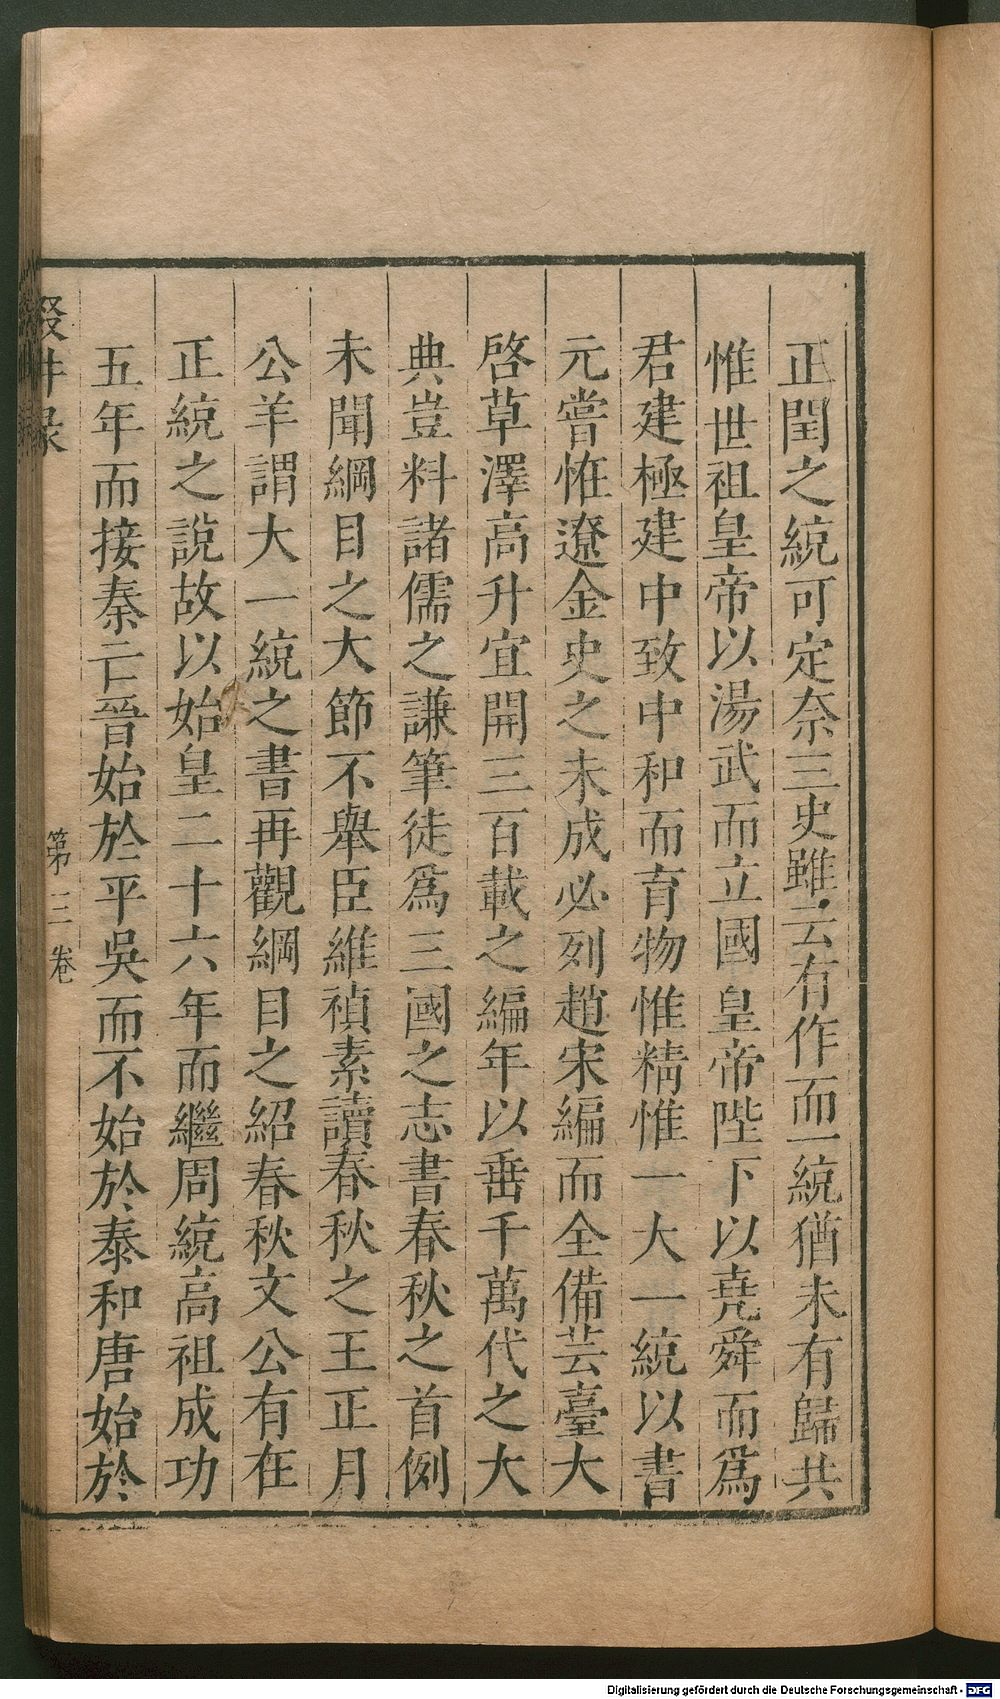 正閏之統可定奈三史雖云有作而一統猶未有歸共
惟世祖皇帝以湯武而立國皇帝陛下以堯舜而爲
君建極建中致中和而育物惟精惟一大一統以書
元嘗惟遼金史之未成必列趙宋編而全備芸臺大
啓草澤高升宜開三百載之編年以垂千萬代之大
典豈料諸儒之謙筆徒爲三國之志書春秋之首例
未聞綱目之大節不舉臣維禎素讀春秋之王正月
公羊謂大一統之書再觀綱目之紹春秋文公有在
正統之說故以始皇二十六年而繼周統高祖成功
五年而接秦亡晉始於平吳而不始於泰和唐始於
第三卷
Digitalisierung gefördert durch die Deutsche Forschungsgemeinschaft - DFG